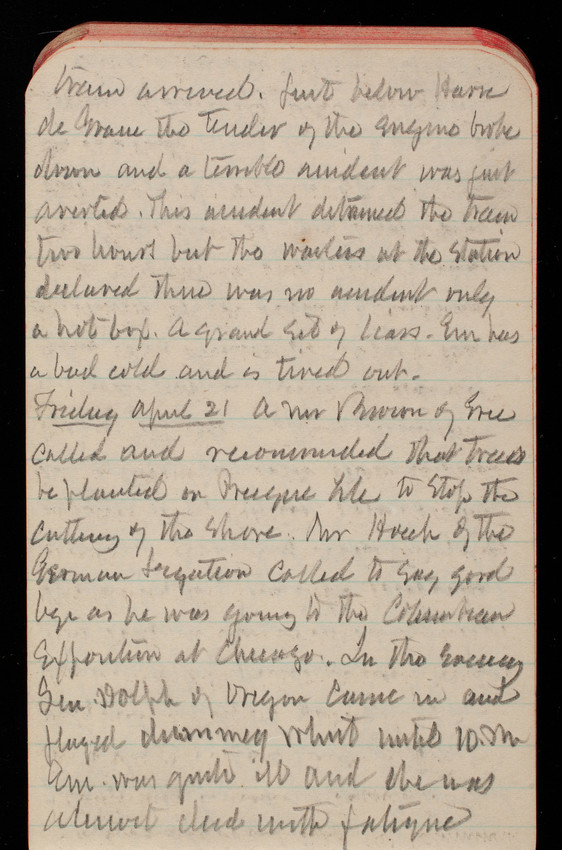 train arrived. Just below Havre
de Grace the tender of the engine broke
down and a terrible accident was just
averted. This accident detained the train
two hours but the waiters at the station
declared there was no accident only
a hot box. A grand set of liars. Em has
a bad cold and is tired out.
Friday April 21 A Mr Brown of Erie
called and recommended that trees
be planted on Presque Isle to stop the
cutting of the shore. Mr Hoech of the
German Legation called to say good
bye as he was going to the Columbian
Exposition at Chicago. In the evening
Sen. Dolph of Oregon came in and
played dummy whist until 10.
Em. was quite ill and she was
almost dead with fatigue